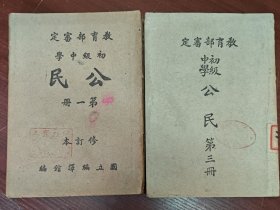 教育部審定
初級中學
公民
第一冊
修訂本
國立編譯館編
教育部審定
初級
中學
公民
第三冊